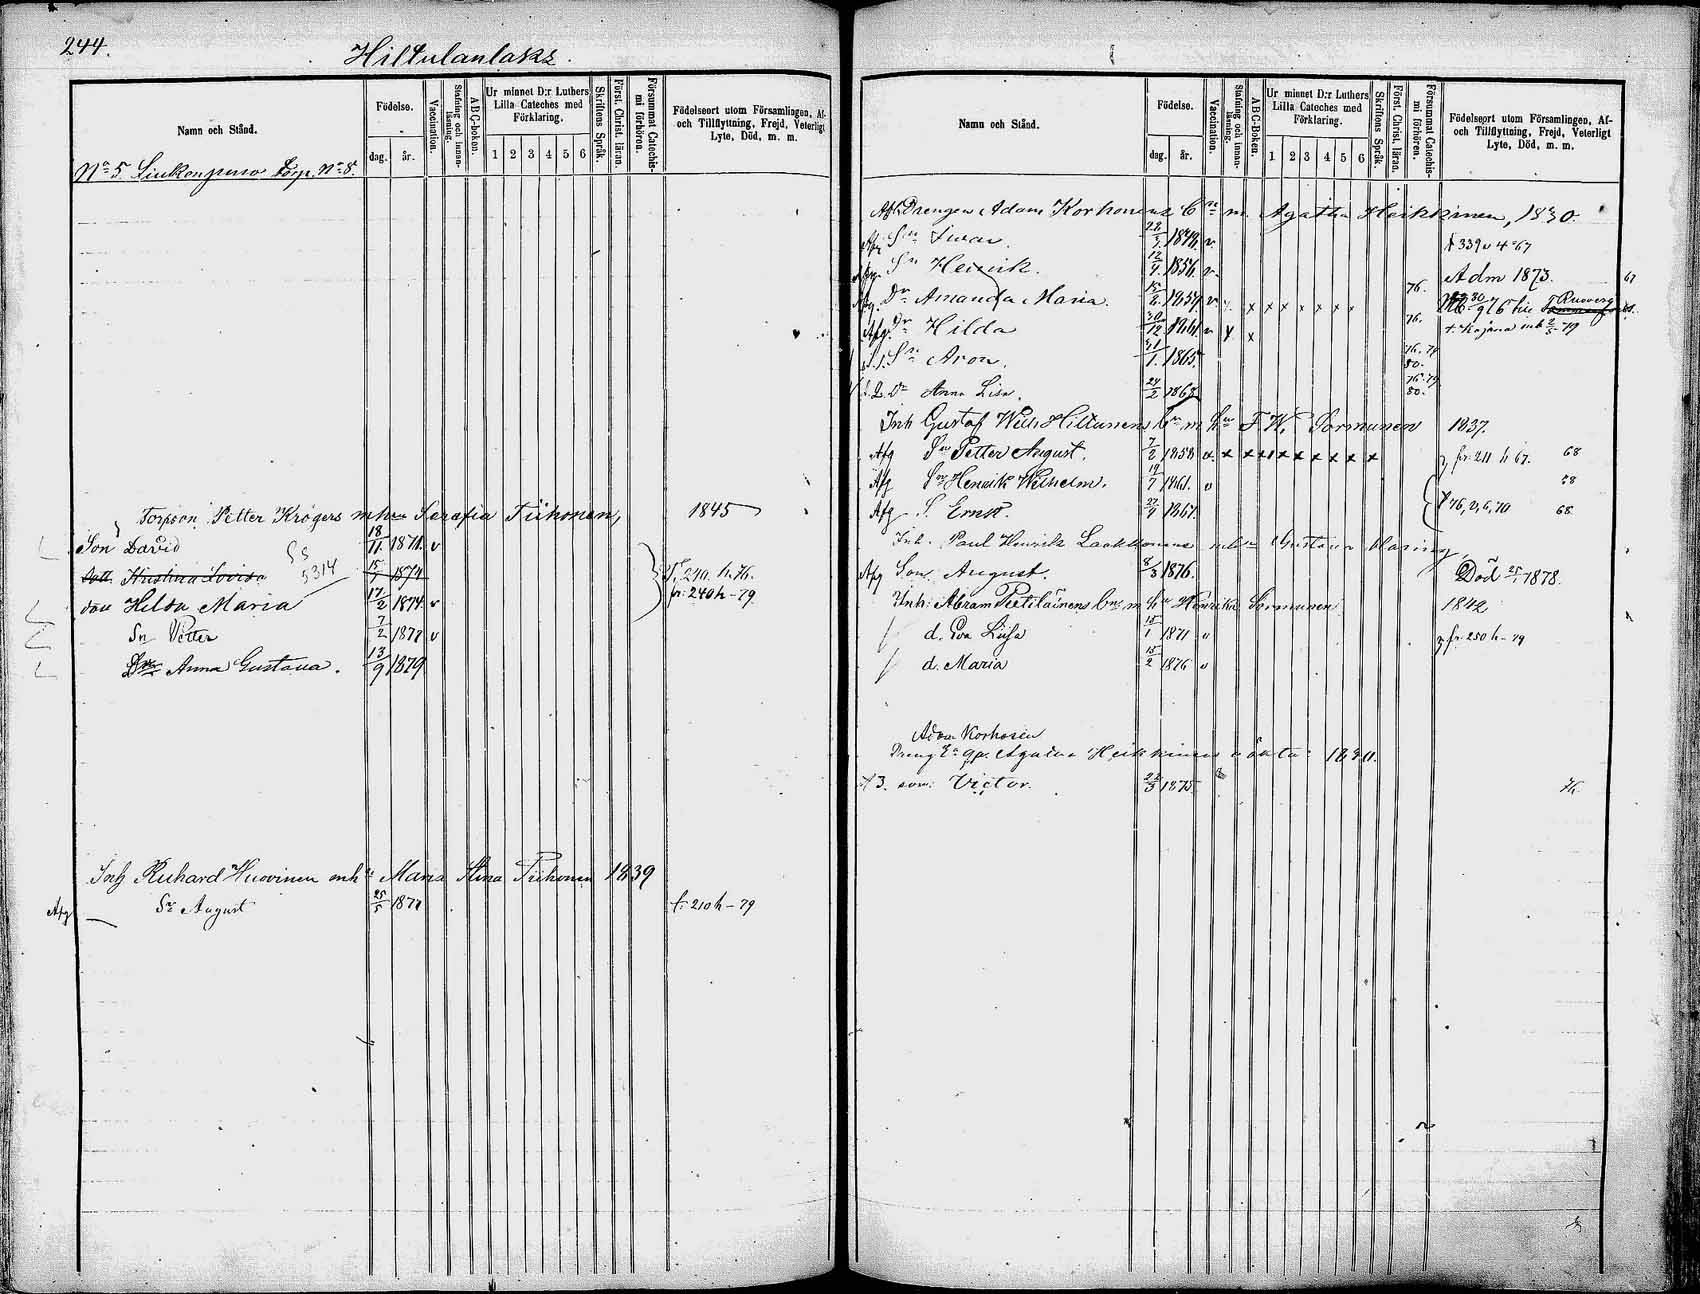 244.
Hiltulanlaks.
Namn och Stånd.
Födelse.
dag.
år.
Vaccination.
Stafning och innan-läsning.
ABC-boken.
Ur minnet D:r Luthers
Lilla Cateches med
Förklaring.
1 2 3 4 5 6
Skriftens Språk.
Först. Christ. läran.
Försummat Catechis-mi förhören.
Födelseort utom Församlingen, Af-
och Tillflyttning, Frejd, Veterligt
Lyte, Död, m. m.
No 5 Torp. No 8.
Torpson Petter Krögers mhu Serafia Tiihonen, 1845
Son David 18/11 1871. v
5314
dott. Kustina Lovisa 15/1 1874
fr. 240. h. 76.
dau Hilda Maria 17/2 1874. v fr: 240 h-79.
Sn Petter 7/2 1877 v
Dr Anna Gustava. 13/9 1879
Inh Rickard Huovinen mhu Maria Stina Tiihonen 1839
Afg Sn August 25/5 1877 fr 210 h-79
Namn och Stånd.
Födelse.
dag.
år.
Vaccination.
Stafning och innan-läsning.
ABC-Boken.
Ur minnet D:r Luthers
Lilla Cateches med
Förklaring.
1 2 3 4 5 6
Skriftens Språk.
Först. Christ. läran.
Försummat Catechis-mi förhören.
Födelseort utom Församlingen, Af-
och Tillflyttning, Frejd, Veterligt
Lyte, Död, m. m.
Afl. Drengen Adam Korhonens E m. Agatha Heikkinen, 1830.
Sn Iwar. v 339 v 4 67
Sn Henrik. 12/4 1856. v Adm 1873. 67
Afg. Dr Amanda Maria. 15/2 v x x x x x x x 76.
Afg. Dr Hilda 30/12 1861 v x 76. t. Kajana mb 2/5-79
Sn Aron. 1. 1865. 76.79 80.
Dr Anna Lisa. 24/2 1868 76.79 80.
Inh Gustaf Wilh Hiltunens m hu F. W. Sormunen 1837.
Afg Sn Petter August. 7/2 1858 v. x x x x x x x x x fr. 211 h 67. 68
Afg Sn Henrik Wilhelm. 19/7 1861. v 68
Afg S. Ernst. 27/1 1867. 76, 2, 6, 70 68.
Inh. Paul Henrik Laakkonens mhu Gustava Maning,
Afg Son August. 8/3 1876. Död 25/1 1878.
Inh: Abram Pietiläinens m hu Henrika Sormunen 1842
d. Eva Liisa 15/1 1871 v fr. 250 h-79
d. Maria 15/2 1876 v
Adam Korhonen
Dreng Agata Heikkinens oäkta: 1830.
son: Victor. 22/3 1875. 76.